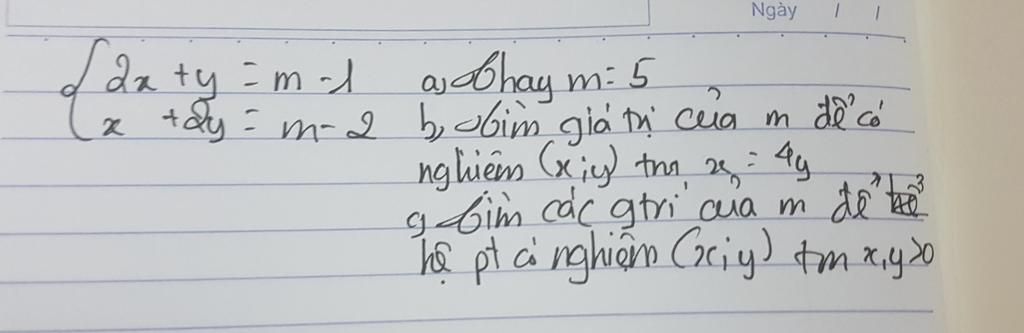 Ngày / /
2x + y = m - 1 a, Thay m = 5
x + 2y = m - 2 b, Tìm giá trị của m để có
nghiệm (x; y) tmn x = 4y
c, Tìm các gtrị của m để
hệ pt có nghiệm (x; y) tm x, y > 0